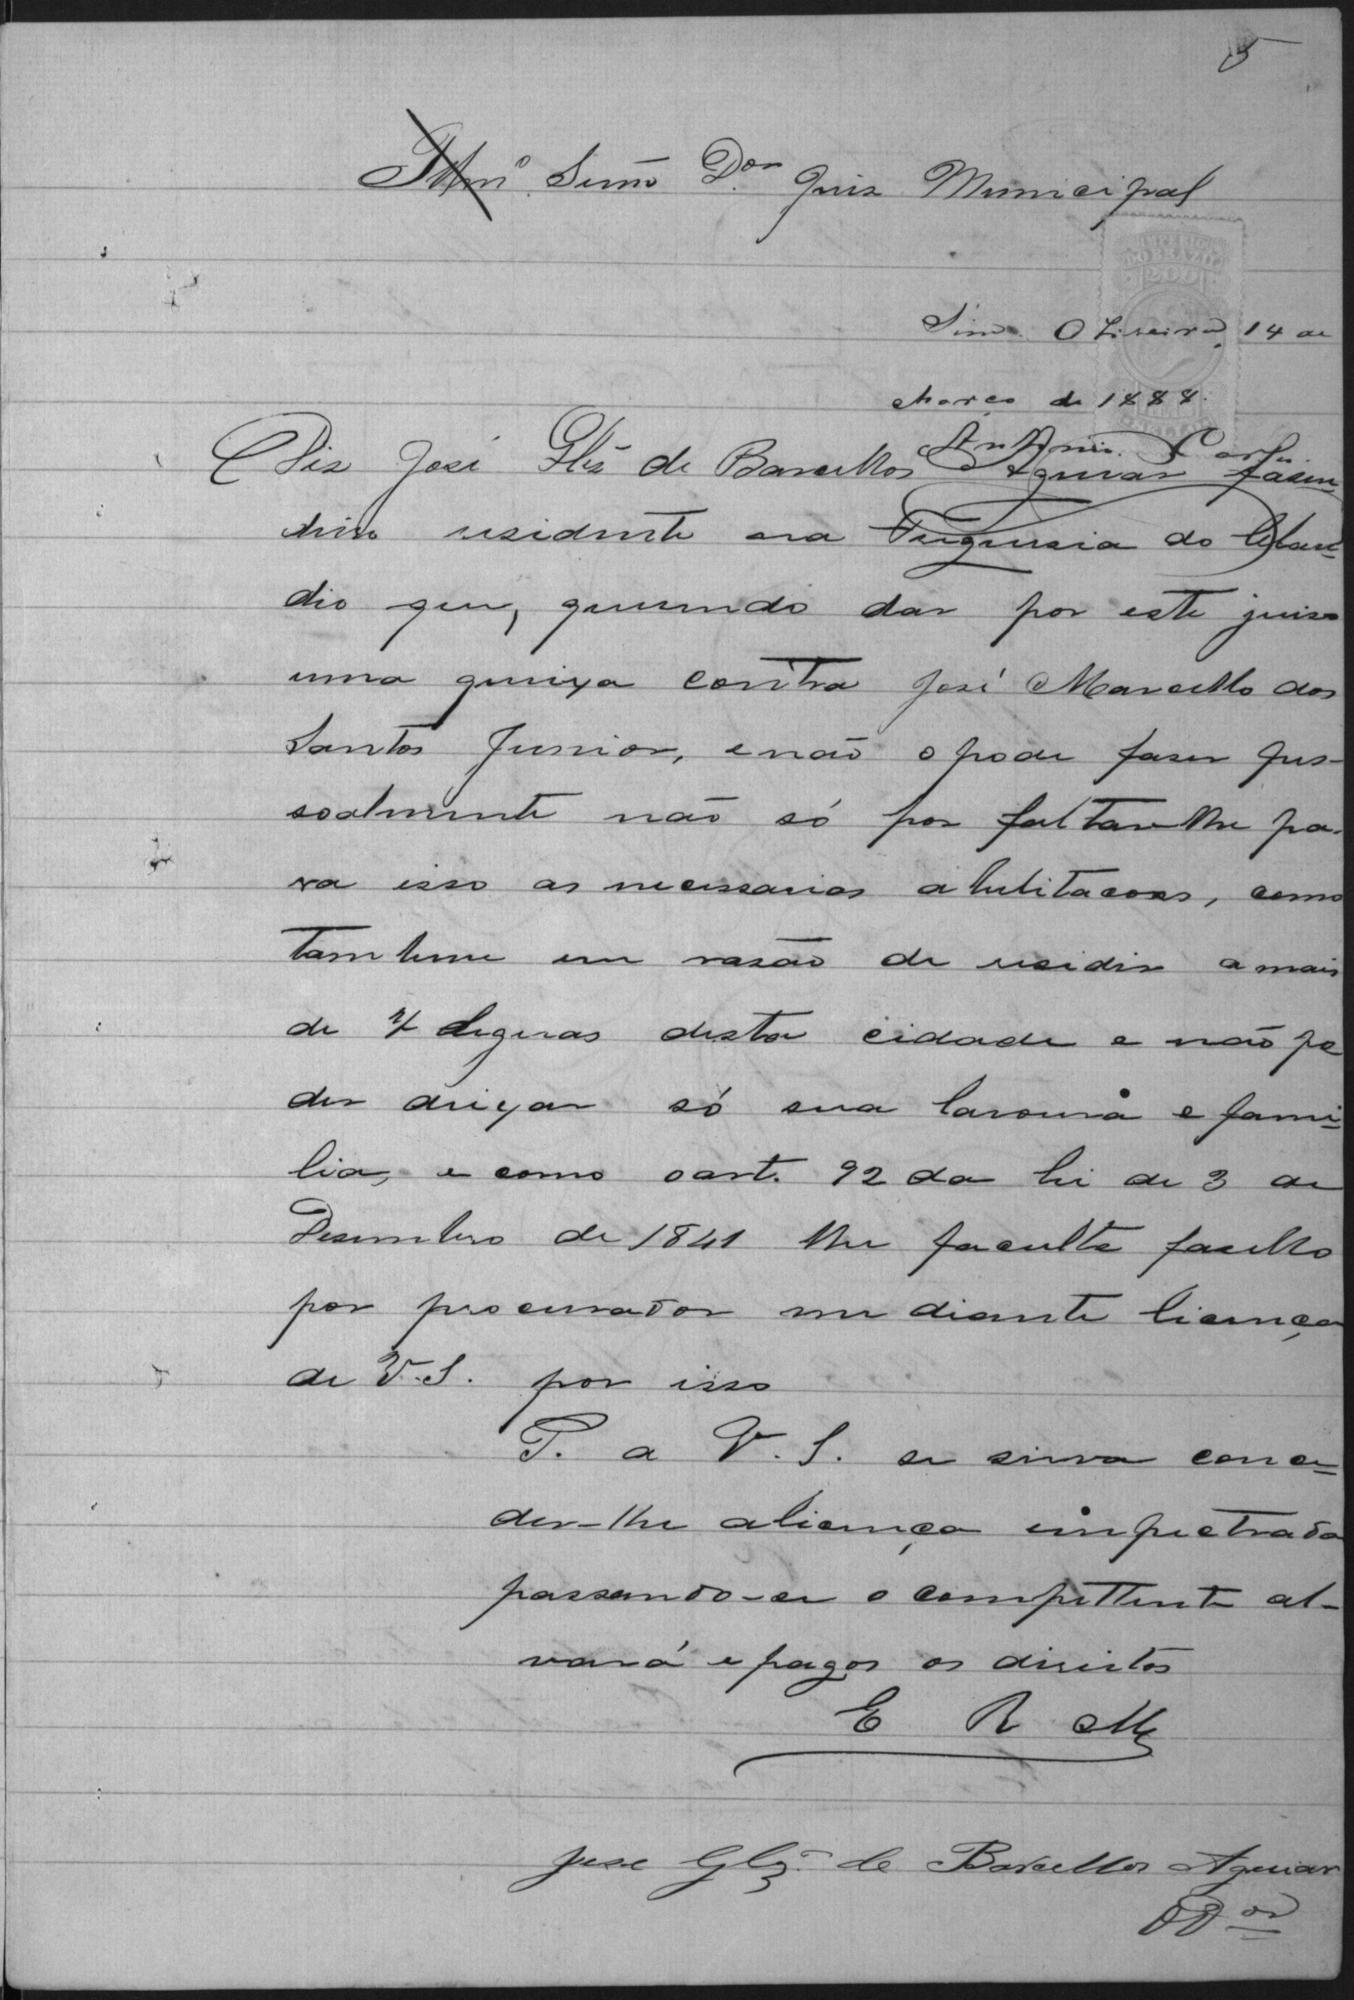 5
Illmº Senr̃ Dor Juiz Municipal
IMPERIO DO BRAZIL
200
Sim. Oliveira, 14 de
Março de 1888.
Antonio Carlos
Diz José Glz̃ de Barcellos Aguiar fasen-
deiro residente na Freguesia do Clau-
dio que, querendo dar por este juiso
uma queixa contra José Marcello dos
Santos Junior, e não o pode faser pes-
soalmente não só por faltar-lhe pa-
ra isso as necessarias abelitacoes, como
tambem em rasão de residir a mais
de 4 leguas desta cidade e não po
der deixar só sua lavoura e fami-
lia, e como o art. 92 da lei de 3 de
Desembro de 1841 lhe faculta faselho
por procurador mediante licença
de V.S. por isso
P. a V. S. se sirva conce-
der-lhe a licença impetrada
passando-se o compettente al-
vará e pagos os direitos
E R Mce
Jose Glz̃ de Barcellos Aguiar